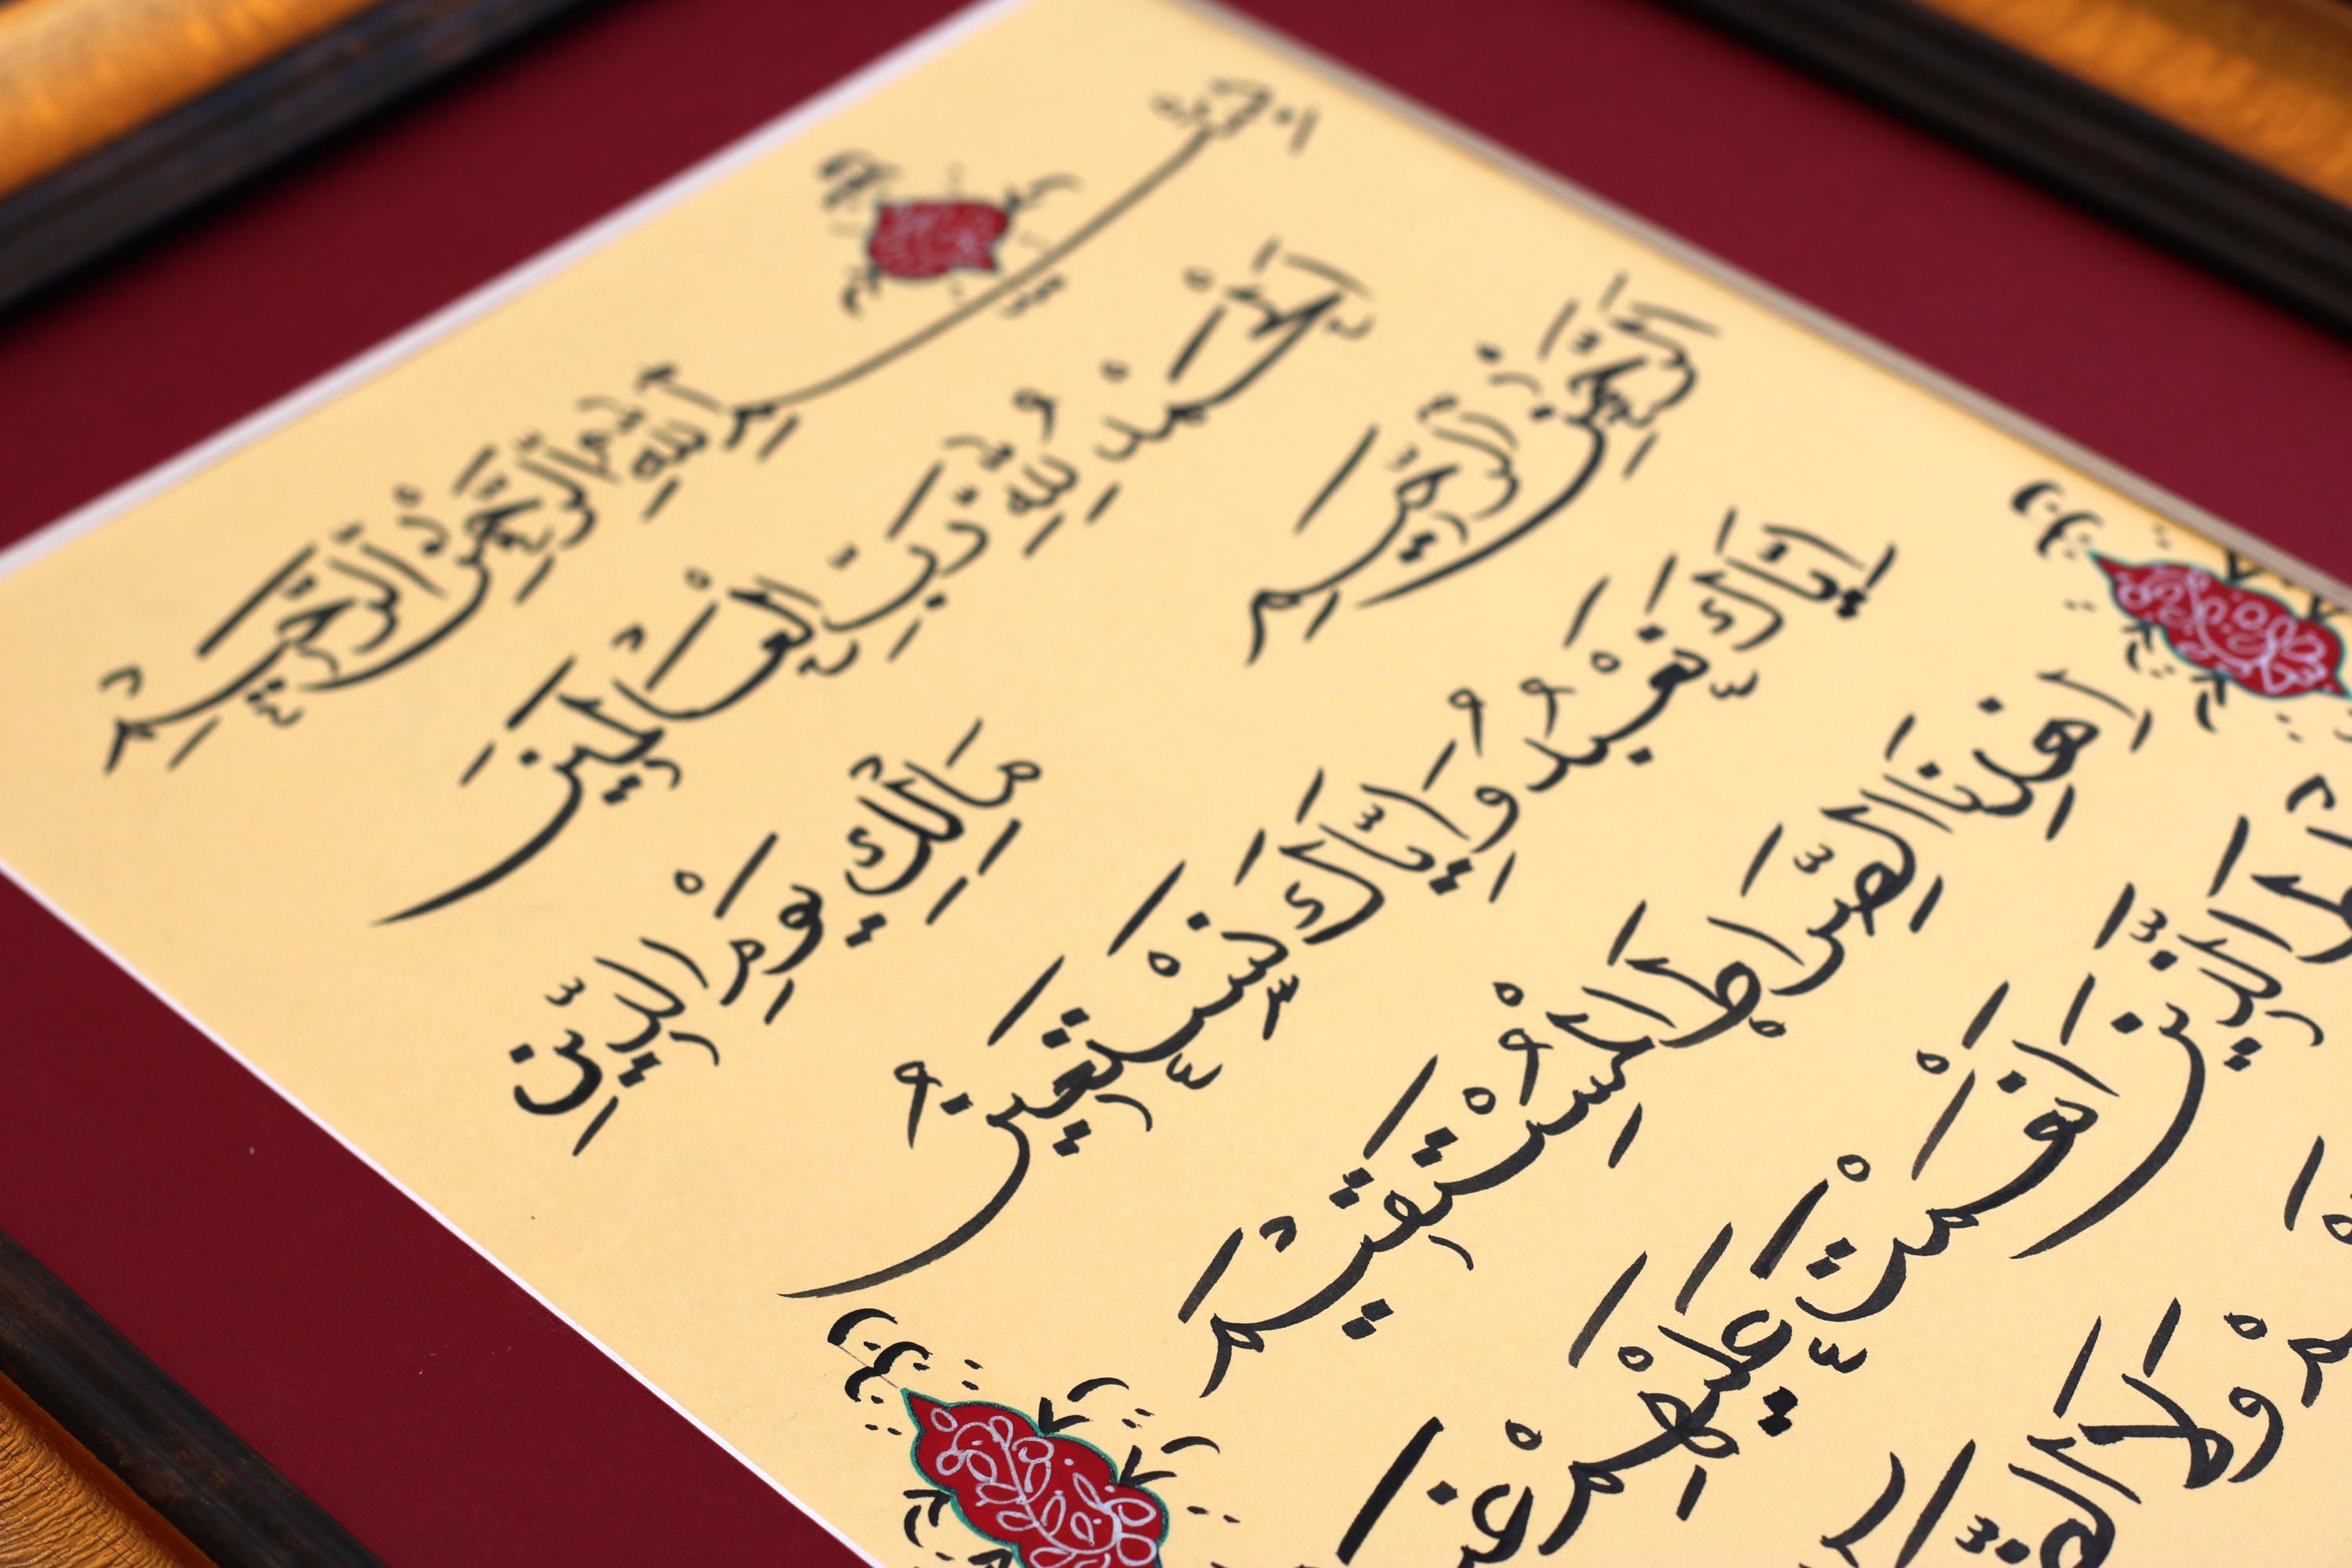 بِسْمِ اللهِ الرَّحْمٰنِ الرَّحِيمِ
اَلْحَمْدُ لِلّٰهِ رَبِّ الْعَالَمِينَ
اَلرَّحْمٰنِ الرَّحِيمِ مَالِكِ يَوْمِ الدِّينِ
اِيَّاكَ نَعْبُدُ وَاِيَّاكَ نَسْتَعِينُ
اِهْدِنَا الصِّرَاطَ الْمُسْتَقِيمَ
الَّذِينَ اَنْعَمْتَ عَلَيْهِمْ
وَلَا